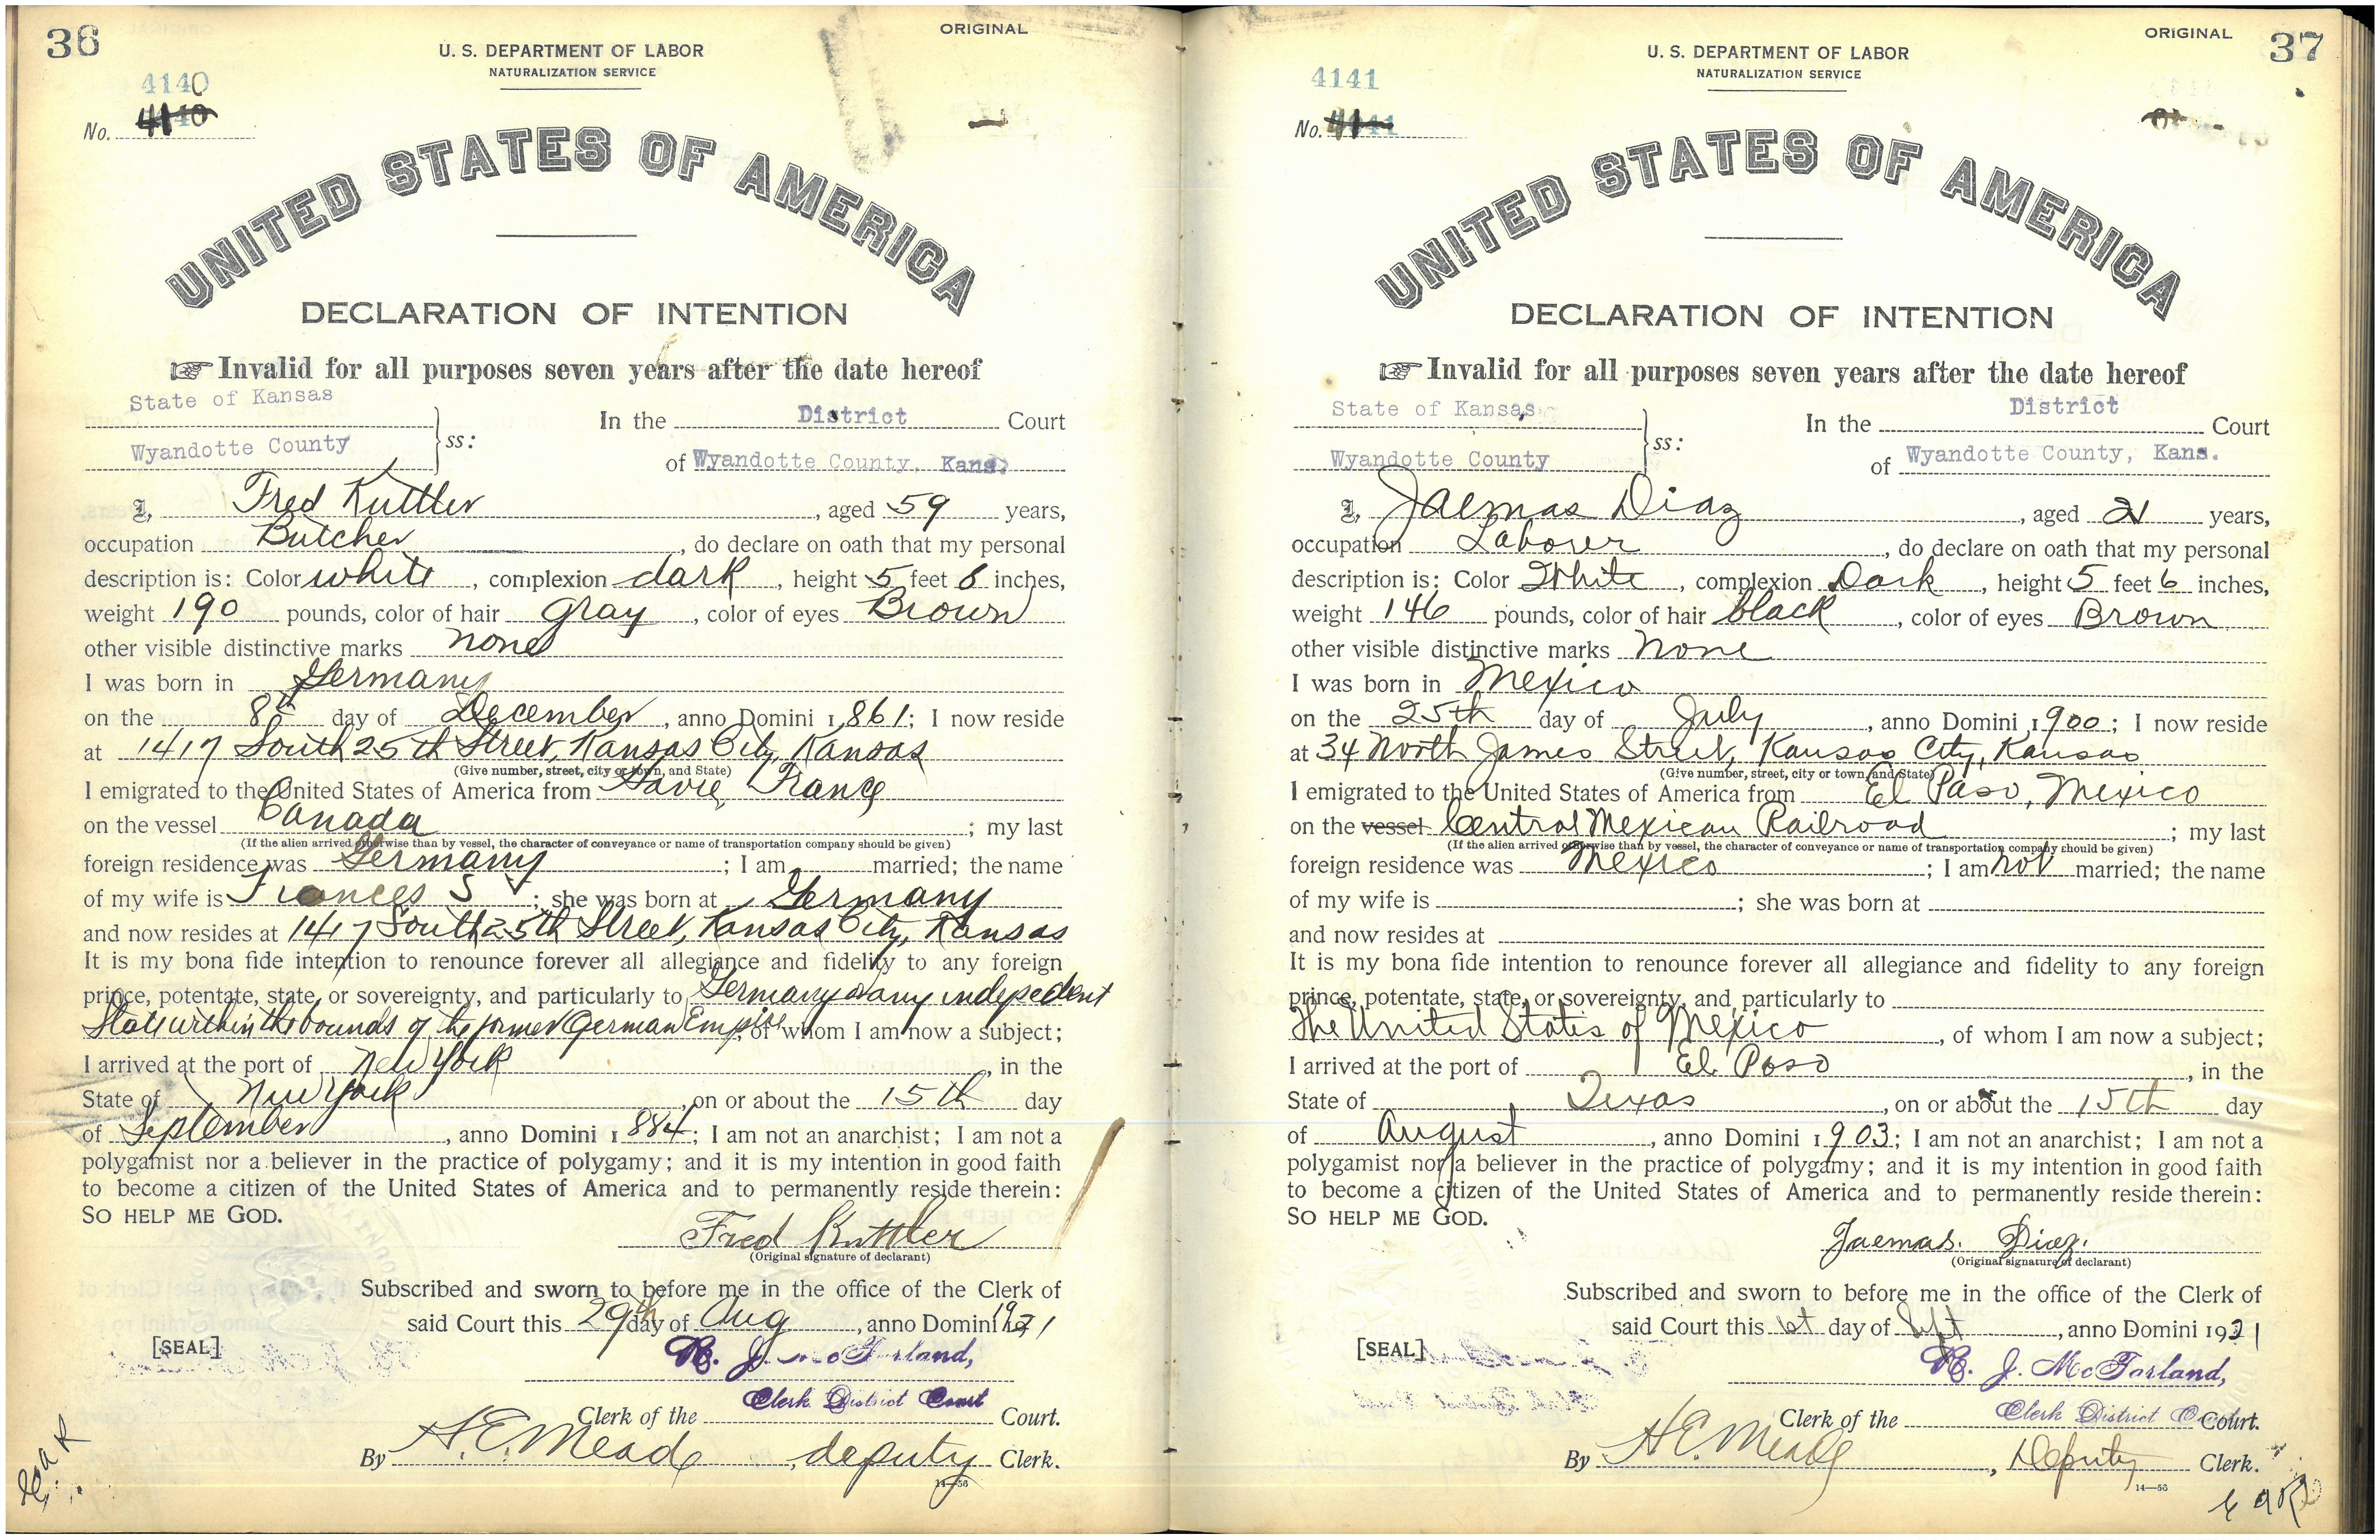 36
ORIGINAL
U. S. DEPARTMENT OF LABOR
NATURALIZATION SERVICE
4140
No. 4140
UNITED STATES OF AMERICA
DECLARATION OF INTENTION
☞ Invalid for all purposes seven years after the date hereof
State of Kansas
In the District Court
Wyandotte County
ss:
of Wyandotte County, Kans.
I, Fred Kuttler, aged 59 years,
occupation Butcher, do declare on oath that my personal
description is: Color white, complexion dark, height 5 feet 6 inches,
weight 190 pounds, color of hair gray, color of eyes Brown
other visible distinctive marks none
I was born in Germany
on the 8th day of December, anno Domini 1861; I now reside
at 1417 South 25th Street, Kansas City, Kansas
(Give number, street, city or town, and State)
I emigrated to the United States of America from Havre, France
on the vessel Canada; my last
(If the alien arrived otherwise than by vessel, the character of conveyance or name of transportation company should be given)
foreign residence was Germany; I am married; the name
of my wife is Frances S; she was born at Germany
and now resides at 1417 South 25th Street, Kansas City, Kansas
It is my bona fide intention to renounce forever all allegiance and fidelity to any foreign
prince, potentate, state, or sovereignty, and particularly to Germany or any indepedent
State within the bounds of the former German Empire, of whom I am now a subject;
I arrived at the port of New York, in the
State of New York, on or about the 15th day
of September, anno Domini 1884; I am not an anarchist; I am not a
polygamist nor a believer in the practice of polygamy; and it is my intention in good faith
to become a citizen of the United States of America and to permanently reside therein:
SO HELP ME GOD.
Fred Kuttler
(Original signature of declarant)
Subscribed and sworn to before me in the office of the Clerk of
said Court this 29th day of Aug, anno Domini 1921
[SEAL]
R. J. McFarland,
Clerk District Court
Clerk of the Court.
By H. E. Mead, deputy Clerk.
14—56
37
ORIGINAL
U. S. DEPARTMENT OF LABOR
NATURALIZATION SERVICE
4141
No. 4141
UNITED STATES OF AMERICA
DECLARATION OF INTENTION
☞ Invalid for all purposes seven years after the date hereof
State of Kansas
In the District Court
Wyandotte County
ss:
of Wyandotte County, Kans.
I, Jaemas Diaz, aged 21 years,
occupation Laborer, do declare on oath that my personal
description is: Color White, complexion Dark, height 5 feet 6 inches,
weight 146 pounds, color of hair black, color of eyes Brown
other visible distinctive marks None
I was born in Mexico
on the 25th day of July, anno Domini 1900; I now reside
at 34 North James Street, Kansas City, Kansas
(Give number, street, city or town, and State)
I emigrated to the United States of America from El Paso, Mexico
on the vessel Central Mexican Railroad; my last
(If the alien arrived otherwise than by vessel, the character of conveyance or name of transportation company should be given)
foreign residence was Mexico; I am not married; the name
of my wife is ; she was born at
and now resides at
It is my bona fide intention to renounce forever all allegiance and fidelity to any foreign
prince, potentate, state, or sovereignty, and particularly to
The United States of Mexico, of whom I am now a subject;
I arrived at the port of El Paso, in the
State of Texas, on or about the 15th day
of August, anno Domini 1903; I am not an anarchist; I am not a
polygamist nor a believer in the practice of polygamy; and it is my intention in good faith
to become a citizen of the United States of America and to permanently reside therein:
SO HELP ME GOD.
Jaemas. Diaz.
(Original signature of declarant)
Subscribed and sworn to before me in the office of the Clerk of
said Court this 1st day of Sept, anno Domini 1921
[SEAL]
R. J. McFarland,
Clerk District Court
Clerk of the Court.
By H E Mead, Deputy Clerk.
14—56